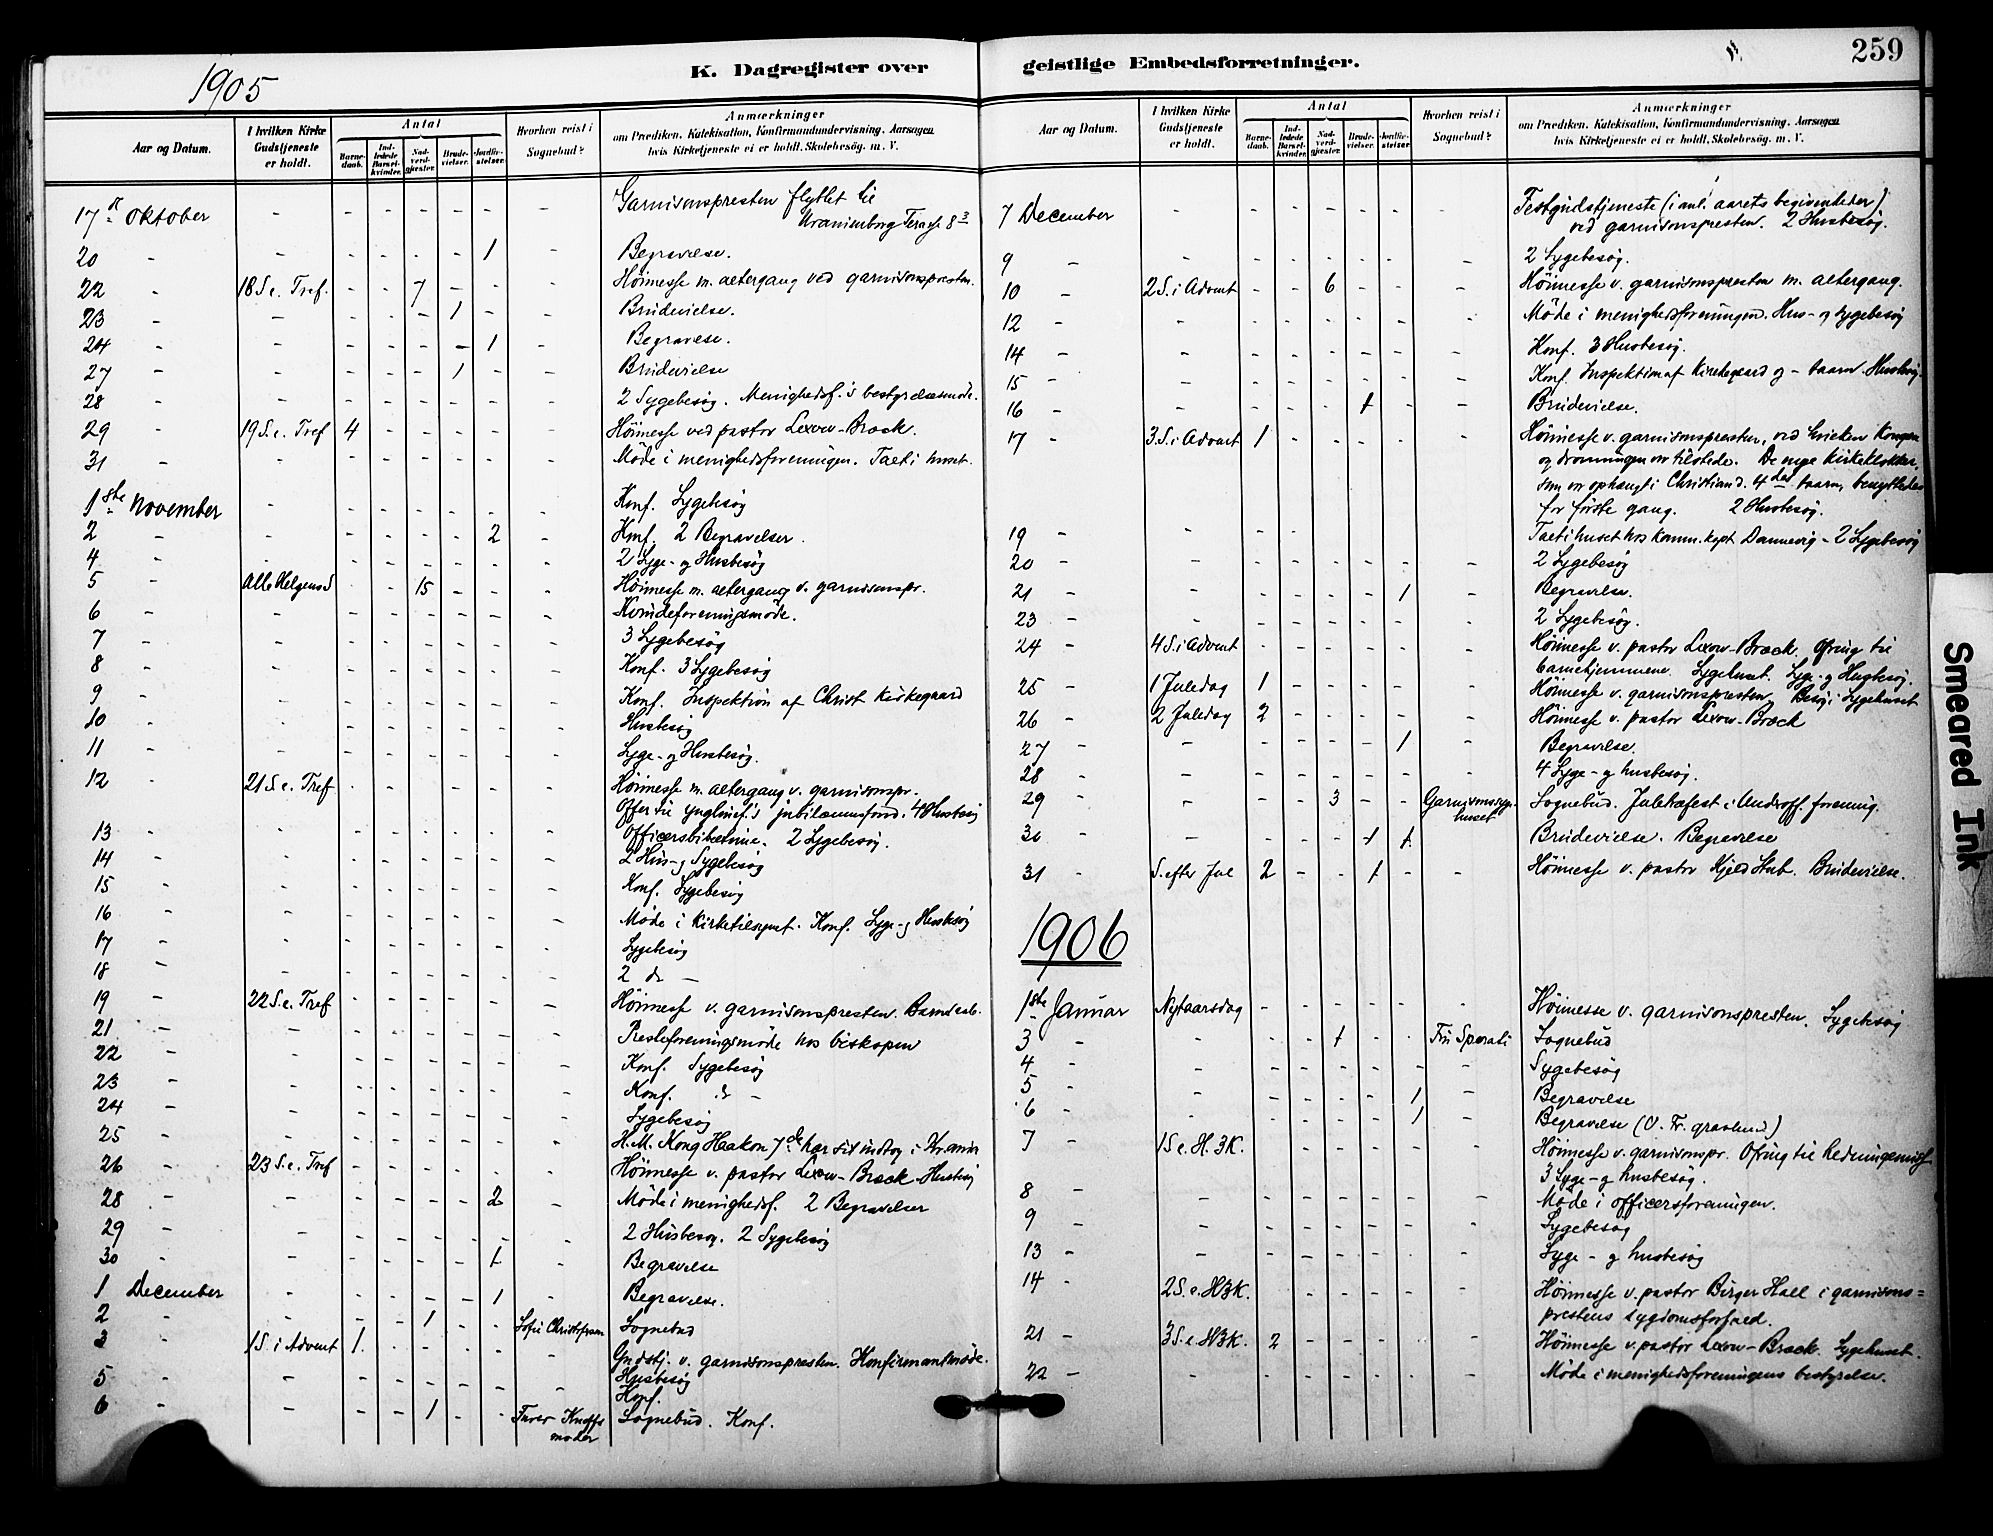 1905
K. Dagregister over
geistlige Embedsforretninger.
259
Aar og Datum.
I hvilken Kirke Gudstjeneste er holdt.
Antal
Barnedaab.
Indledede Barselkvinder.
Nadverdgjæster.
Brudevielser.
Jordfæstelser.
Hvorhen reist i Sognebud?
Anmærkninger
om Prædiken, Katekisation, Konfirmandundervisning, Aarsagen
hvis Kirketjeneste ei er holdt, Skolebesøg. m. V.
17 Oktober - - - - - - - Garnisonspresten flyttet til
Uranienborg Terasse 8
20 - - - - - - 1 - Begravelse.
22 - 18 S. e. Tref. - - 7 - - - Höimesse m. altergang ved garnisonspresten.
23 - - - - - 1 - - Brudevielse.
24 - - - - - - 1 - Begravelse.
27 - - - - - 1 - - Brudevielse
28 - - - - - - - - 2 Sygebesøg. Menighedsf.'s bestyrelsesmøde.
29 - 19 S. e. Tref 4 - - - - - Höimesse ved pastor Lexow-Brock.
31 - - - - - - - - Møde i menighedsforeningen. Talt i huset.
1ste November - - - - - - - Konf. Sygebesøg
2 - - - - - - 2 - Konf. 2 Begravelser.
4 - - - - - - - - 2 Syge- og Husbesøg
5 - Alle Helgens S - - 15 - - - Höimesse m. altergang v. garnisonspr.
6 - - - - - - - - Kvindeforeningsmøde.
7 - - - - - - - - 3 Sygebesøg
8 - - - - - - - - Konf. 3 Sygebesøg
9 - - - - - - - - Konf. Inspektion af Christ Kirkegaard
10 - - - - - - - - Husbesøg
11 - - - - - - - - Syge- og Husbesøg.
12 - 21 S. e. Tref - - - - - - Höimesse m. altergang v. garnisonspr.
Offer til Ynglinef.'s jubilæumsfond. 4 Husbesøg
13 - - - - - - - - Officersbibeltime. 2 Sygebesøg.
14 - - - - - - - - 2 Hus- og Sygebesøg
15 - - - - - - - - Konf. Sygebesøg
16 - - - - - - - - Møde i Kirketilsynet. Konf. Syge- og Husbesøg
17 - - - - - - - - Sygebesøg
18 - - - - - - - - 2 do -
19 - 22 S. e. Tref - - - - - - Höimesse v. garnisonspresten. Barnedaab.
21 - - - - - - - - Presteforeningsmøde hos biskopen
22 - - - - - - - - Konf. Sygebesøg
23 - - - - - - - - Konf. do -
24 - - - - - - - - Sygebesøg
25 - - - - - - - - H. M. Kong Haakon 7de har sit indtog i Kr.ania
26 - 23 S. e. Tref - - - - - - Höimesse v. pastor Lexow-Brock. Husbesøg
28 - - - - - - 2 - Møde i menighedsf. 2 Begravelser
29 - - - - - - - - 2 Husbesøg. 2 Sygebesøg
30 - - - - - - 1 - Begravelse
1 December - - - - - 1 - Begravelse.
2 - - - - 1 - - Sofie Christofersen Sognebud
3 - 1 S. i Advent 1 - - - - - Gudstj. v. garnisonspresten. Konfirmantmøde.
5 - - - - - - - - Husbesøg
Konf.
6 - - - - 1 - - Knoffs moder Sognebud. Konf.
Aar og Datum.
I hvilken Kirke Gudstjeneste er holdt.
Antal
Barnedaab.
Indledede Barselkvinder.
Nadverdgjæster.
Brudevielser.
Jordfæstelser.
Hvorhen reist i Sognebud?
Anmærkninger
om Prædiken, Katekisation, Konfirmandundervisning, Aarsagen
hvis Kirketjeneste ei er holdt, Skolebesøg. m. V.
7 December - - - - - - - Festgudstjeneste (i anl. aarets begivenheder)
ved garnisonspresten. 2 Husbesøg.
9 - - - - - - - - 2 Sygebesøg.
10 - 2 S. i Advent - - 6 - - - Höimesse v. garnisonspresten m. altergang.
12 - - - - - - - - Møde i menighedsforeningen. Hus- og Sygebesøg
14 - - - - - - - - Konf. 3 Husbesøg.
15 - - - - - - - - Konf. Inspektion af Kirkegaard og - taarn. Husbesøg.
16 - - - - - 1 - - Brudevielse.
17 - 3 S. i Advent 1 - - - - - Höimesse v. garnisonspresten, ved hvilken Kongen
og dronningen var tilstede. De nye Kirkeklokker,
som er ophængt i Christian d. 4des taarn, benyttedes
for første gang. 2 Husbesøg.
19 - - - - - - - - Talt i huset hos komm. kapt. Dannevig - 2 Sygebesøg
20 - - - - - - - - 2 Sygebesøg
21 - - - - - - 1 - Begravelse.
23 - - - - - - - - 2 Sygebesøg.
24 - 4 S. i Advent - - - - - - Höimesse v. pastor Lexow-Brock. Ofring til
barnehjemmene. Sygehuset. Syge- og Husbesøg.
25 - 1 Juledag 1 - - - - - Höimesse v. garnisonspresten. Besøg i Sygehuset
26 - 2 Juledag 2 - - - - - Höimesse v. pastor Lexow-Brock
27 - - - - - - 1 - Begravelse.
28 - - - - - - - - 4 Syge- og husbesøg.
29 - - - - 3 - - Garnisonssygehuset Sognebud. Juletræfest i Underoff. forening.
30 - - - - - 1 1 - Brudevielse. Begravelse
31 - S. efter Jul 2 - - 1 - - Höimesse v. pastor Kjeld Stub. Brudevielse.
1906
1ste Januar Nytaarsdag - - - - - - Höimesse v. garnisonspresten. Sygebesøg
3 - - - - 1 - - Fru Sperati Sognebud
4 - - - - - - - - Sygebesøg
5 - - - - - - 1 - Begravelse
6 - - - - - - 1 - Begravelse (V. Fr. gravlund)
7 - 1 S. e. H. 3 K. - - - - - - Höimesse v. garnisonspr. Ofring til hedningemis.
3 Syge- og husbesøg.
8 - - - - - - - - Møde i officersforeningen.
9 - - - - - - - - Sygebesøg
13 - - - - - - - - Syge- og husbesøg
14 - 2 S. e. H3K. - - - - - - Höimesse v. pastor Birger Hall i garnisons=
prestens sygdomsforfald.
21 - 3 S. e. H3K. 2 - - - - - Höimesse v. pastor Lexow-Brock. Sygehuset.
22 - - - - - - - - Møde i menighedsforeningens bestyrelse.
Smeared Ink